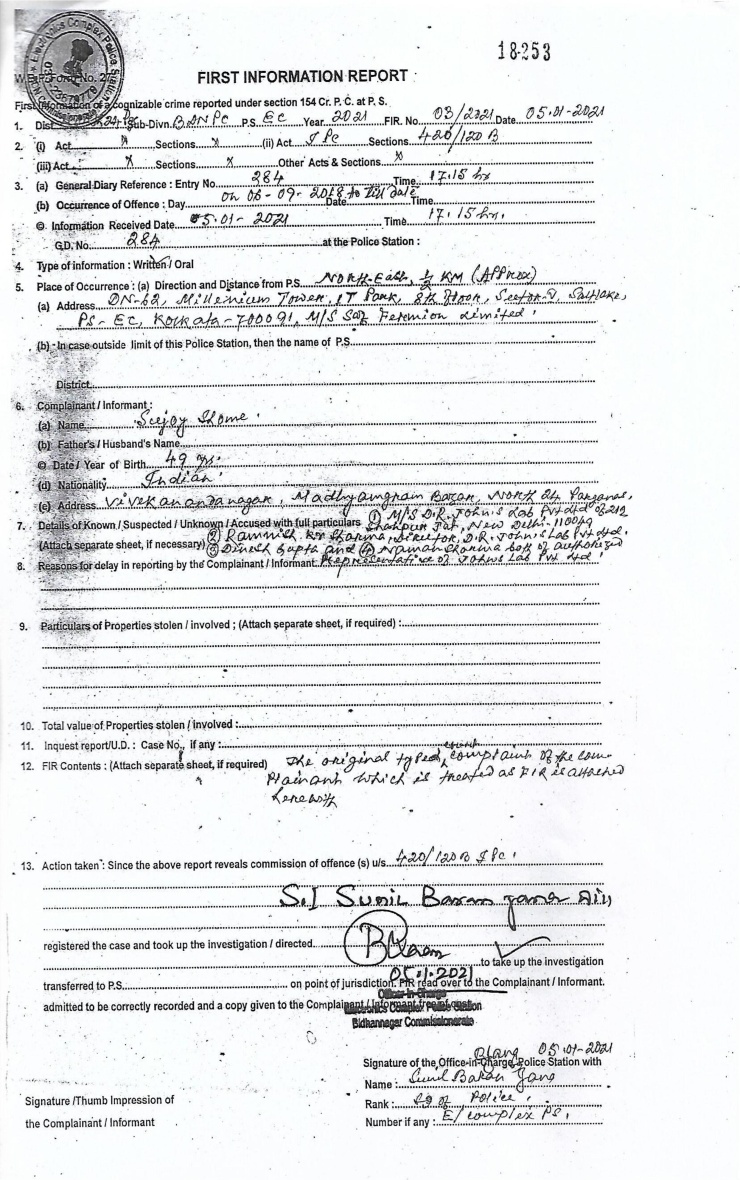 18253
Electronics Complex Police Station
W.B.P. Form No. 27
FIRST INFORMATION REPORT
First Information of a cognizable crime reported under section 154 Cr. P. C. at P. S.
1. Dist. Sub-Divn. BDNPC P.S. EC Year 2021 FIR. No. 03/2021 Date 05.01-2021
2. (i) Act x Sections x (ii) Act IPC Sections 420/120B
(iii) Act x Sections x Other Acts & Sections x
3. (a) General Diary Reference : Entry No. 284 Time 17.15 hr
(b) Occurrence of Offence : Day on 06-09-2018 to till date Date Time
© Information Received Date 05.01-2021 Time 17.15 hr.
G.D. No. 284 at the Police Station :
4. Type of information : Written / Oral
5. Place of Occurrence : (a) Direction and Distance from P.S. North-East, 1/2 KM (Approx)
(a) Address DN-62, Millenium Tower, IT Park, 8th Floor, Sector-V, Saltlake,
PS- EC, Kolkata-700091, M/S Fermion Limited.
(b) In case outside limit of this Police Station, then the name of P.S.
District
6. Complainant / Informant :
(a) Name Shome.
(b) Father's / Husband's Name
© Date / Year of Birth 49 yrs.
(d) Nationality Indian
(e) Address Vivekanandanagar, Madhyamgram Bazar, North 24 Parganas,
7. Details of Known / Suspected / Unknown / Accused with full particulars (1) M/S D.R. John's Lab Pvt Ltd of 212
Shahpur Jat, New Delhi-110049
(Attach separate sheet, if necessary) (2) Kr Sharma, Director, D.R. John's Lab Pvt Ltd.
(3) Dinesh Gupta and (4) Naman Sharma both of authorized
8. Reasons for delay in reporting by the Complainant / Informant representative of Johns Lab Pvt Ltd.
9. Particulars of Properties stolen / involved ; (Attach separate sheet, if required) :
10. Total value of Properties stolen / involved :
11. Inquest report/U.D. : Case No., if any :
12. FIR Contents : (Attach separate sheet, if required) The original typed complaint of the com-
plainant which is treated as FIR is attached
herewith
13. Action taken : Since the above report reveals commission of offence (s) u/s. 420/120B IPC.
S.I Sunil Baran Jana
registered the case and took up the investigation / directed
to take up the investigation
05.1.2021
transferred to P.S. on point of jurisdiction. FIR read over to the Complainant / Informant.
Officer-in-Charge
admitted to be correctly recorded and a copy given to the Complainant / Informant free of cost
Electronics Complex Police Station
Bidhannagar Commissionerate
05.01-2021
Signature of the Office-in-Charge, Police Station with
Name : Sunil Baran Jana
Signature /Thumb Impression of
Rank : SI of Police.
the Complainant / Informant
Number if any : E/complex PS.